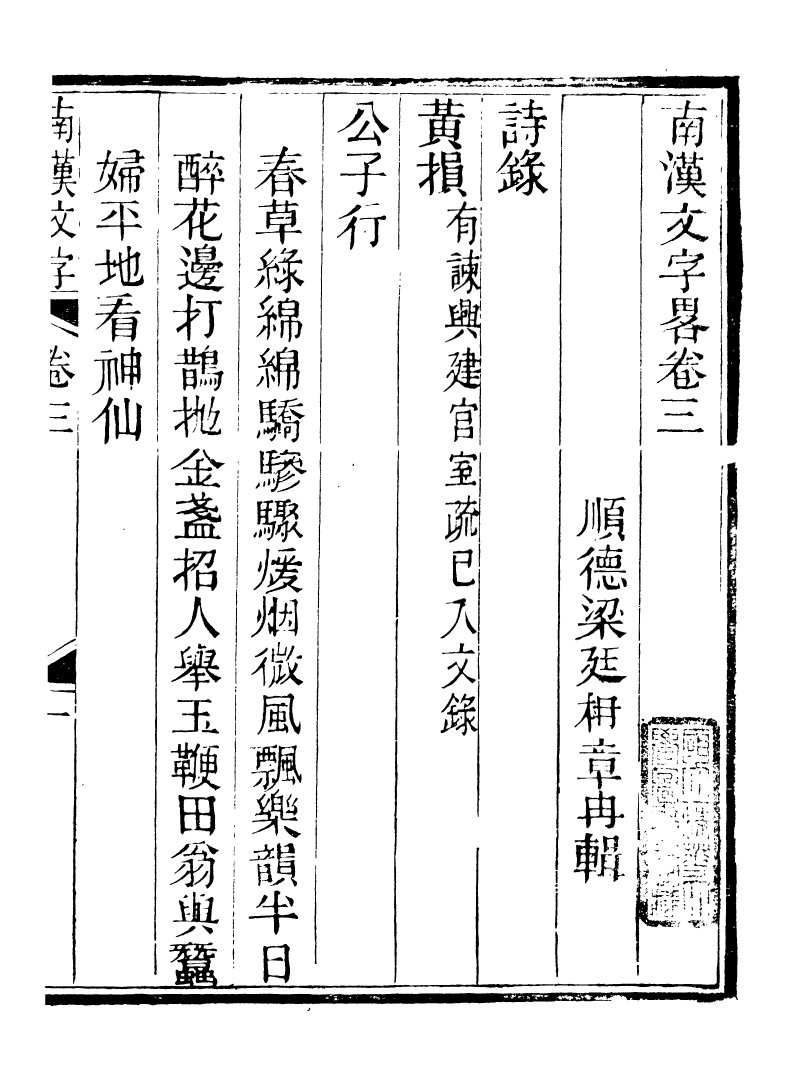 南漢文字畧卷三
順德梁廷枏章冉輯
詩錄
黃損有諫興建宮室疏已入文錄
公子行
春草綠綿綿驕驂驟煖烟微風飄樂韻半日
醉花邊打鵲抛金盞招人舉玉鞭田翁與蠶
婦平地看神仙
南漢文字 卷三 一